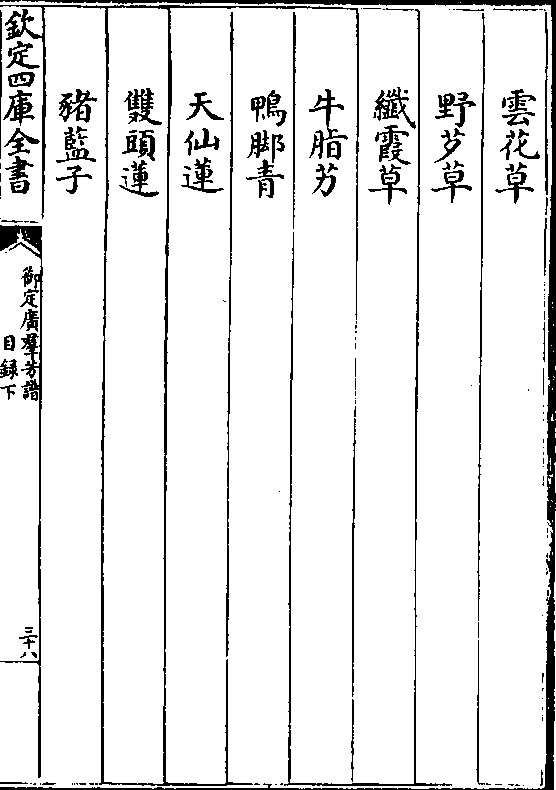 雲花草
野芗草
纎霞草
牛脂芀
鴨脚青
天仙蓮
雙頭蓮
豬藍子
欽定四庫全書
御定廣羣芳譜
目録下
三十八